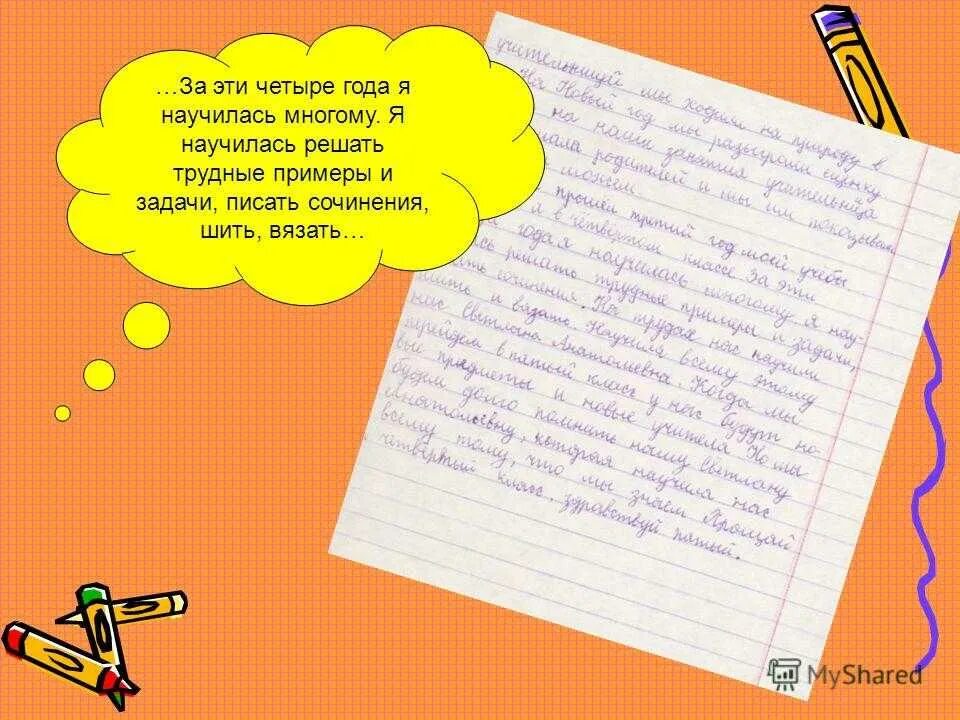 …За эти четыре года я
научилась многому. Я
научилась решать
трудные примеры и
задачи, писать сочинения,
шить, вязать…
учительницей мы ходили на природу в
На Новый год мы разыграли сценку
на наши занятия учительница
родителей и мы им показывали
можем
прошёл третий год моей учебы
я в четвертом классе За эти
года я научилась многому, я нау-
решать трудные примеры и задачи,
сочинения. На трудах нас научили
шить и вязать. Научила всему этому
нас Светлана Анатольевна. Когда мы
перейдем в пятый класс у нас будут но-
вые предметы и новые учителя Но мы
будем долго помнить нашу Светлану
Анатольевну, которая научила нас
всему тому, что мы знаем Прощай
четвертый класс, здравствуй пятый.
MyShared